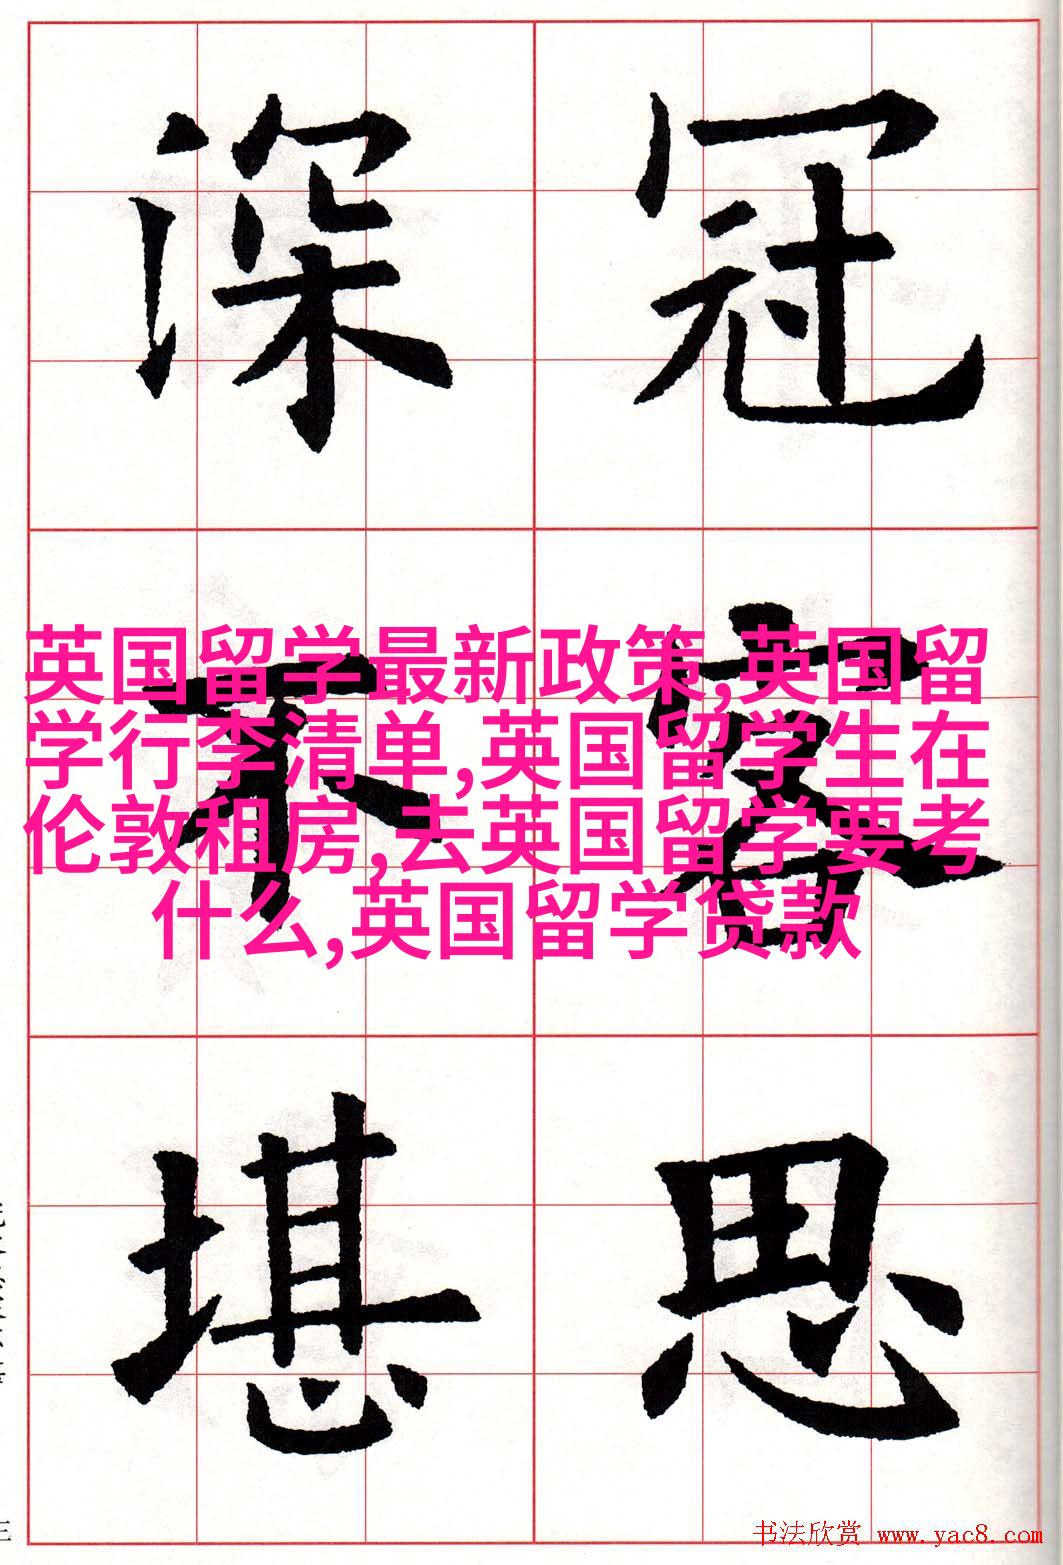 深 冠
不 容
堪 思
英国留学最新政策,英国留
学行李清单,英国留学生在
伦敦租房,去英国留学要考
什么,英国留学贷款
三
书法欣赏 www.yac8.com